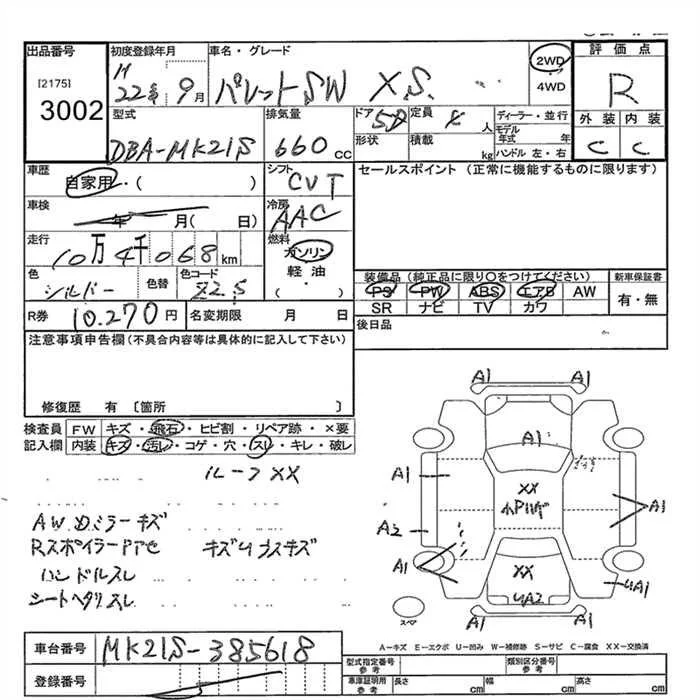 出品番号
[2175]
3002
初度登録年月
H
22年 9月
車名・グレード
パレットSW XS
2WD
4WD
評価点
R
外装 内装
C C
型式
DBA-MK21S
排気量
660 cc
ドア 5D
形状
定員 4 人
積載 kg
ディーラー・並行
モデル年式 年
ハンドル 左・右
車歴
自家用・( )
シフト
CVT
セールスポイント (正常に機能するものに限ります)
車検
年 月( 日)
冷房
AAC
走行
10万4千068 km
燃料
ガソリン
軽油
( )
色
シルバー
色替
色コード
Z2S
装備品 (純正品に限り○をつけてください)
PS PW ABS エアB AW
SR ナビ TV カワ
新車保証書
有・無
R券 10,270円
名変期限 月 日
後日品
注意事項申告欄(不具合内容等は具体的に記入して下さい)
修復歴 有 〔箇所 〕
検査員
記入欄
FW キズ・飛石・ヒビ割・リペア跡・×要
内装 キズ・汚レ・コゲ・穴・スレ・キレ・破レ
ルーフXX
AW Dミラーキズ
Rスポイラー
ハンドルスレ
シートヘタリスレ
A1 A1
A1
A1
XX
A1
A2
A1
XX
UA2
UA1
A1 A1
スペア
A-キズ E-エクボ U-凹み W-補修跡 S-サビ C-腐食 XX-交換済
車台番号
MK21S-385618
登録番号
型式指定番号
参考
類別区分番号
参考
車庫証明用
参考
長さ cm
幅 cm
高さ cm